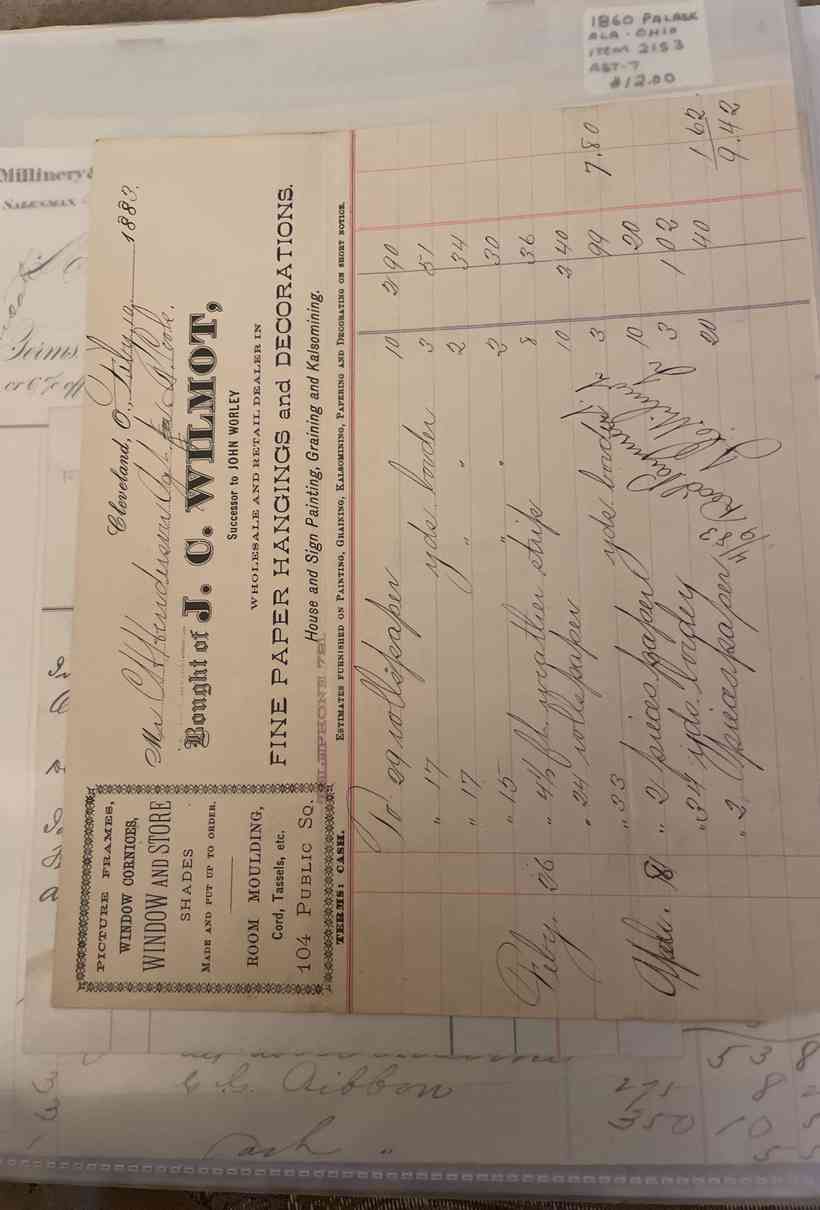 1860 PALASK
ALA - OHIO
ITEM 2153
AST-7
$12.00
Millinery &
SALESMAN
Terms
PICTURE FRAMES,
WINDOW CORNICES,
WINDOW AND STORE
SHADES
MADE AND PUT UP TO ORDER.
ROOM MOULDING,
Cord, Tassels, etc.
104 PUBLIC SQ.
Cleveland, O., 1883.
Bought of J. C. WILMOT,
Successor to JOHN WORLEY
WHOLESALE AND RETAIL DEALER IN
FINE PAPER HANGINGS and DECORATIONS.
House and Sign Painting, Graining and Kalsomining.
TELEPHONE 781.
TERMS: CASH. ESTIMATES FURNISHED ON PAINTING, GRAINING, KALSOMINING, PAPERING AND DECORATING ON SHORT NOTICE.
To 29 rolls paper 10 2 90
" 17 yds border 3 51
" 17 " " 2 34
" 15 " " 2 30
Feby. 26 " 4½ ft weather strip 8 36
" 24 rolls paper 10 2 40
" 33 yds border 3 99 7.80
Apl. 18 " 2 pieces paper 10 20
" 34 yds border 3 1 02
" 2 pieces paper 20 40 1.62
9.42
4/19 83 Recd Payment
J. C. Wilmot
Ribbon 275
350
Cash "
5 3 8